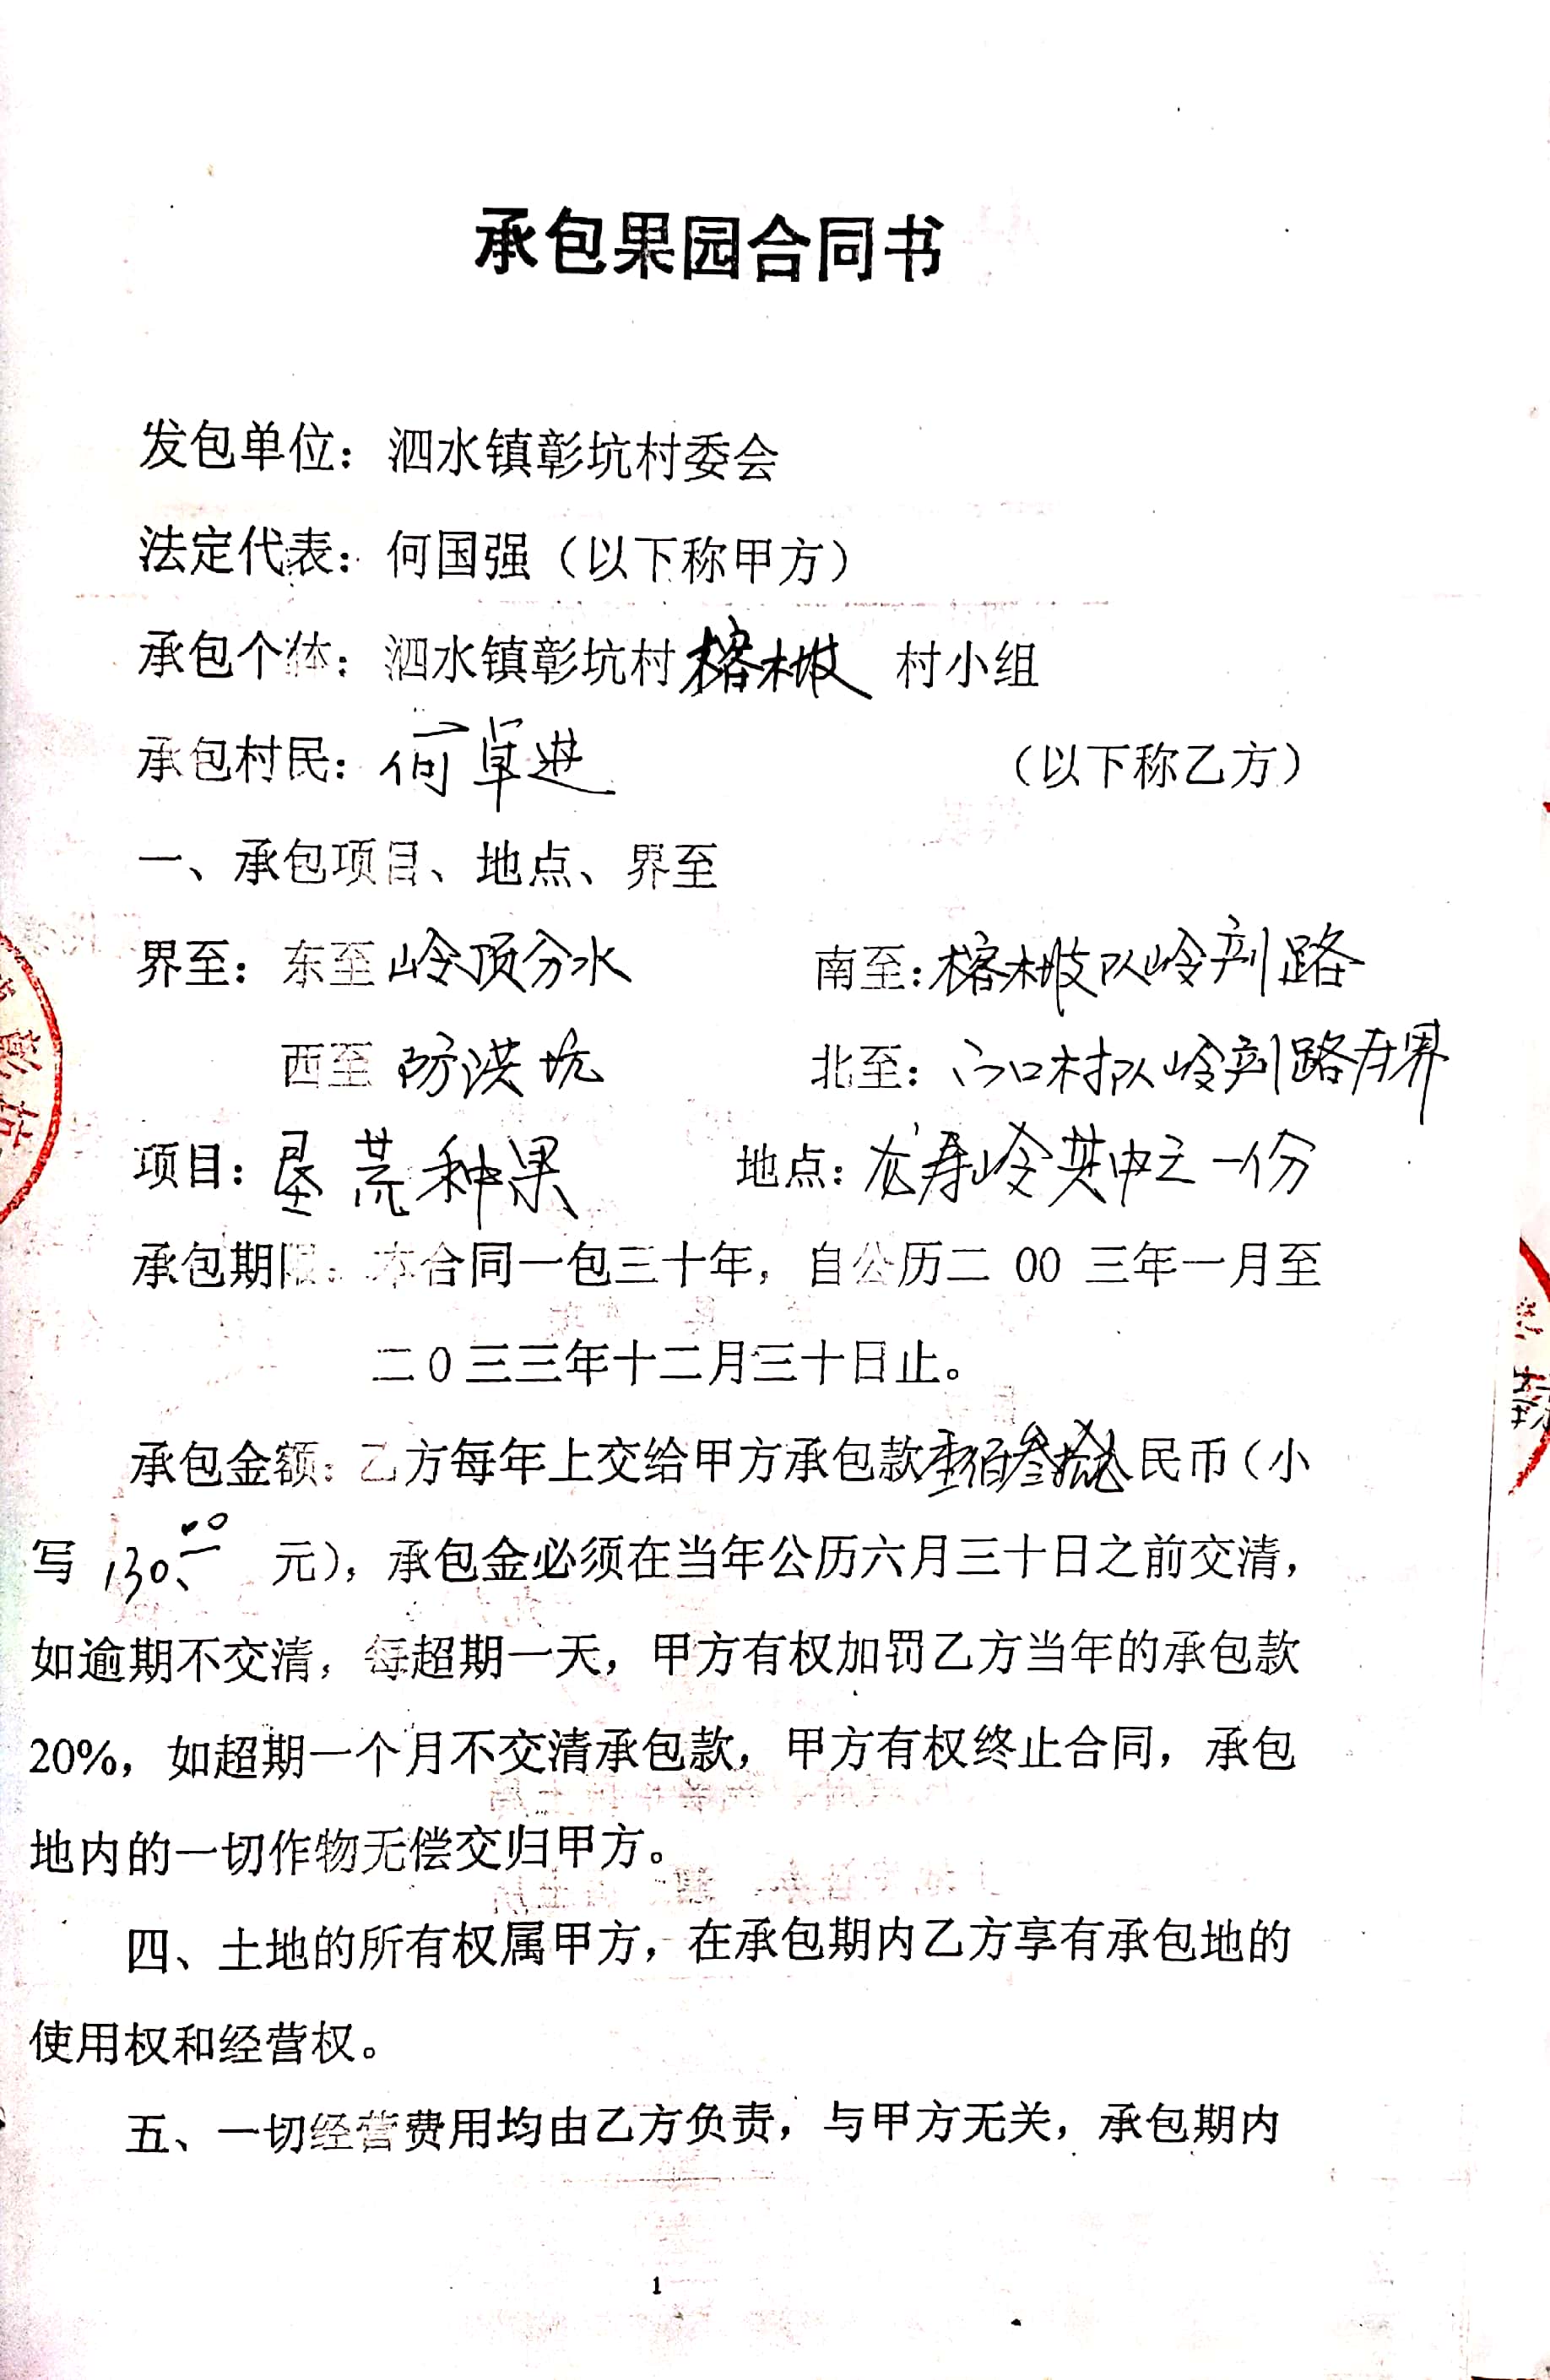 承包果园合同书
发包单位：泗水镇彰坑村委会
法定代表：何国强（以下称甲方）
承包个体：泗水镇彰坑村榕树坡 村小组
承包村民：何卓进 （以下称乙方）
一、承包项目、地点、界至
界至：东至 岭顶分水 南至：榕树坡队岭 路
西至 防洪坑 北至： 口村队岭 路为界
项目：垦荒种果 地点：龙寿岭其中之一份
承包期限：本合同一包三十年，自公历二 00 三年一月至
二0三三年十二月三十日止。
承包金额：乙方每年上交给甲方承包款壹佰叁拾元人民币（小
写 130.00 元），承包金必须在当年公历六月三十日之前交清，
如逾期不交清，每超期一天，甲方有权加罚乙方当年的承包款
20%，如超期一个月不交清承包款，甲方有权终止合同，承包
地内的一切作物无偿交归甲方。
四、土地的所有权属甲方，在承包期内乙方享有承包地的
使用权和经营权。
五、一切经营费用均由乙方负责，与甲方无关，承包期内
1